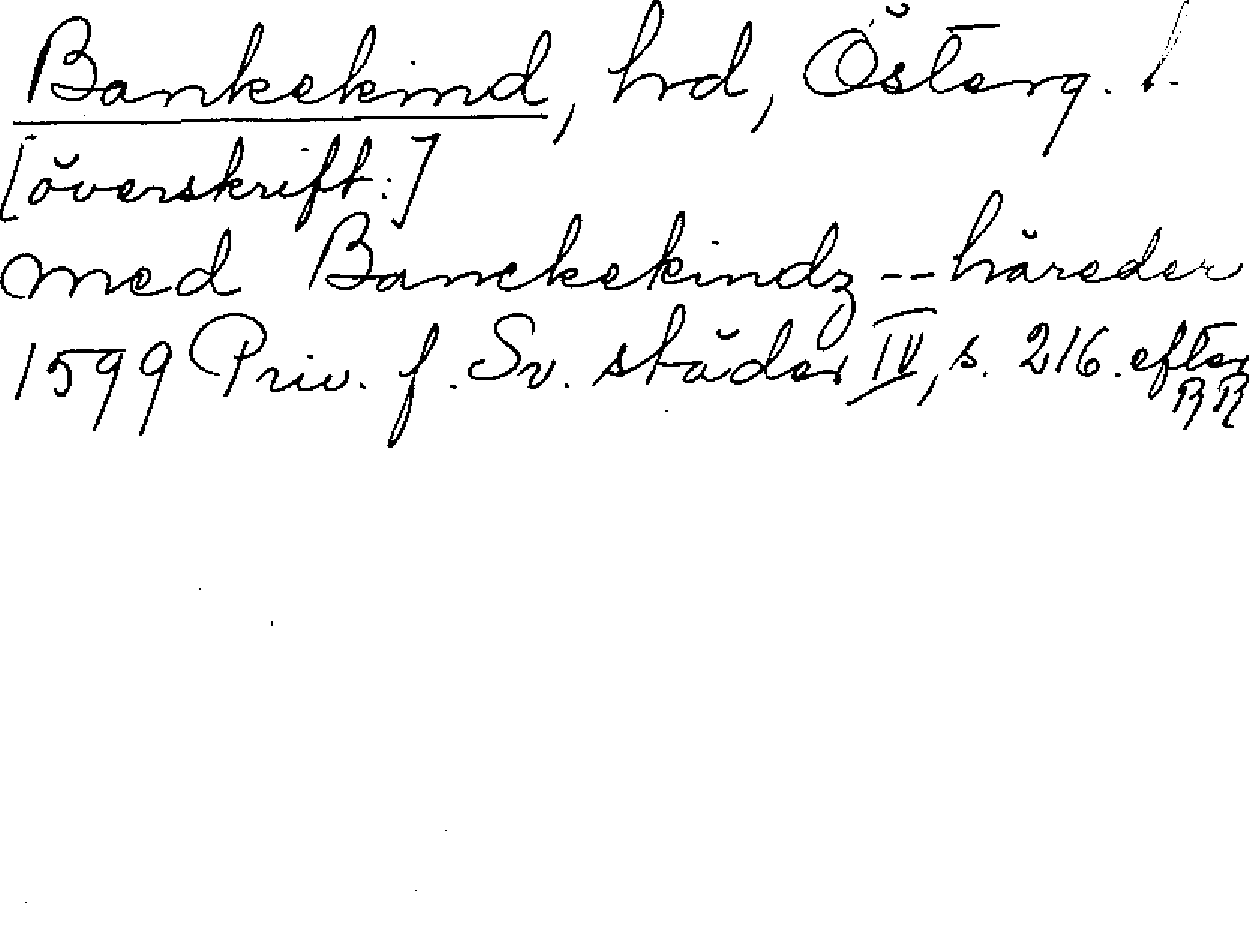 Bankekind, hrd, Österg. l.
[överskrift:]
med Banckekindz -- häreder
1599 Priv. f. Sv. städer IV, s. 216. efter
RR